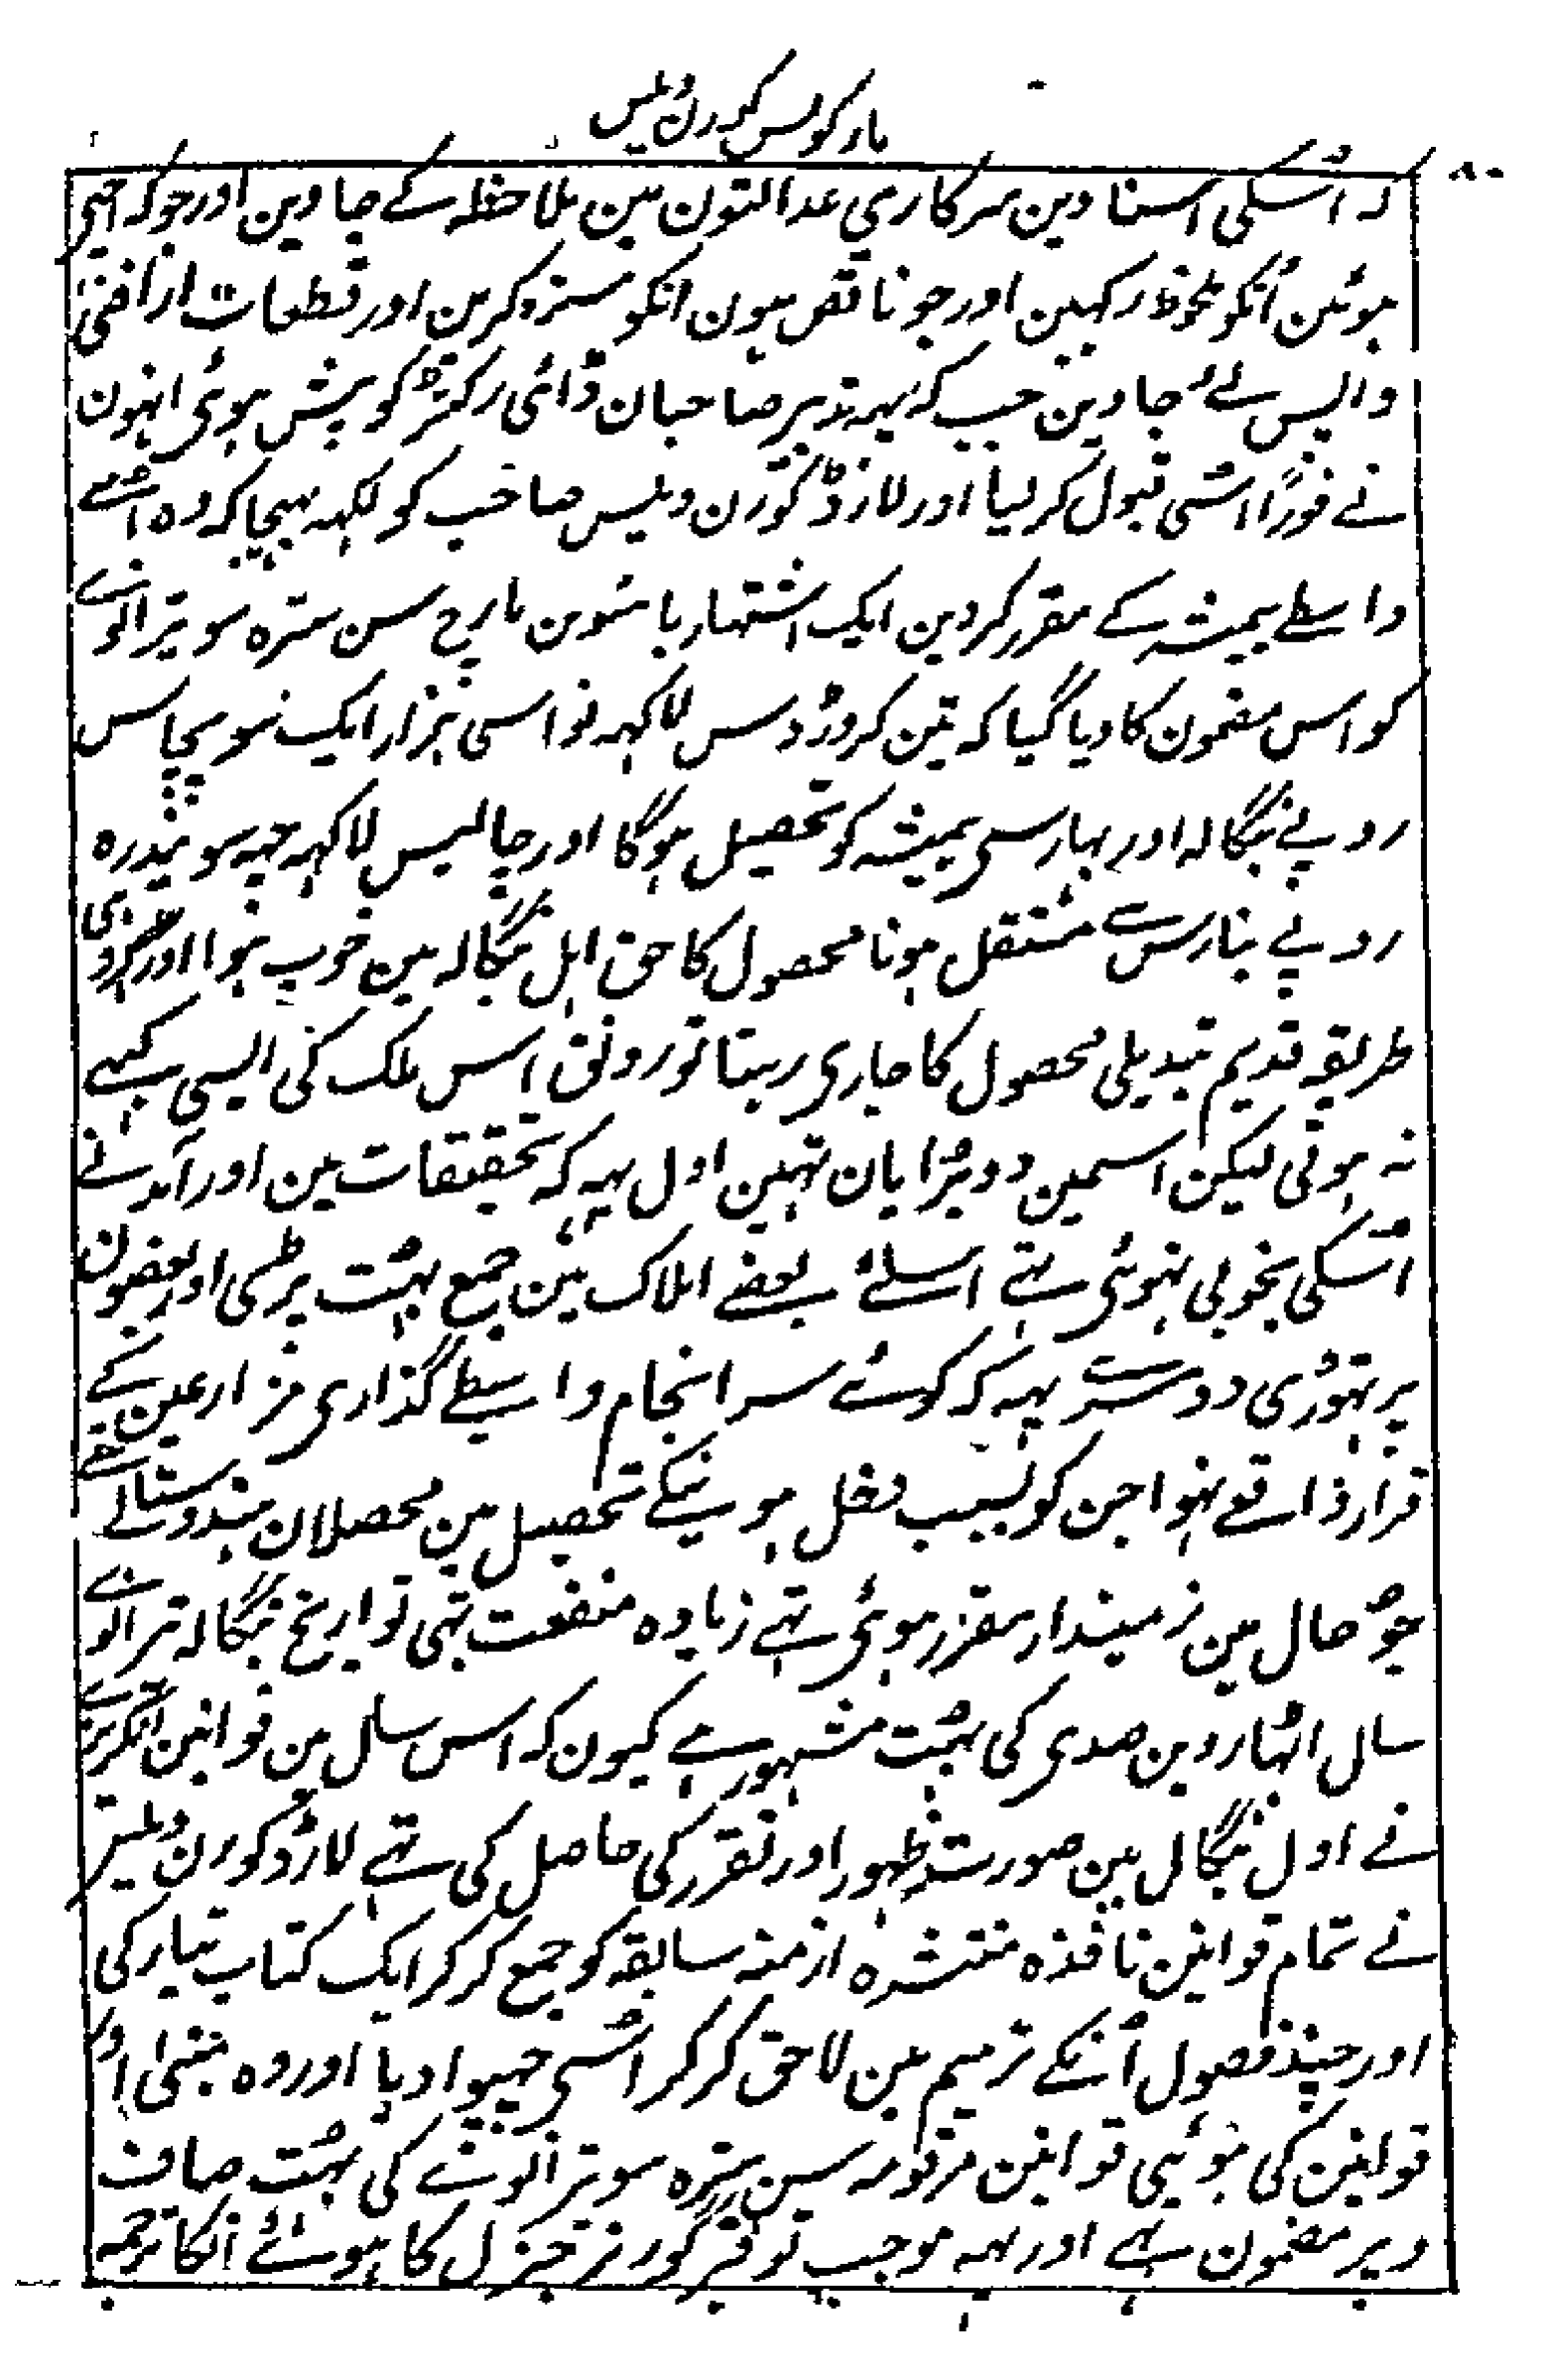 مارکولس کورن ویلس
۸۰
کہ اُسکی اسنادین سرکاری عدالتون مین ملاحظہ کے جاوین اورجوکہ صحیح
ہوئین اُنکو ملحوظ رکہین اور جو ناقص ہون انکو مسترد کرین اور قطعات اراضی
واپس لئے جاوین جب کہ یہہ تدبیر صاحبان ڈائی رکٹر کو پیش ہوئی انہون
نے فورًا اسُی قبول کر لیا اور لارڈ کورن ویلس صاحب کو لکہہ بہیجا کہ وہ اسُے
واسطے ہمیشہ کے مقرر کردین ایک اشتہار بائسوین مارچ سن سترہ سو ترانوے
کو اس مضمون کا دیا گیا کہ تین کروڑ دس لاکہہ نواسی ہزار ایک سو پچاس
روپے بنگالہ اور بہار سی ہمیشہ کو تحصیل ہوگا اور چالیس لاکہہ چہہ سو پندرہ
روپے بنارس سے مستقل ہونا محصول کا حق اہل بنگالہ مین خوب ہوا اور اگر وہی
طریقہ قدیم تبدیلی محصول کا جاری رہتا تو رونق اس ملک کی ایسی کبہے
نہ ہوتی لیکن اسمین دو بڑایان تہین اول یہہ کہ تحقیقات مین اور آمدنے
اُسکی بخوبی نہوئی تہے اسلئے بعضے املاک مین جمع بہُت پڑی اور بعضون
پر تہوڑی دوسرے یہہ کہ کوئے سرانجام واسطے گذاری مزارعین کے
قرار واقعے نہوا جن کو بسبب دخل ہونیکے تحصیل مین محصلان ہندوستانے
جو حال مین زمیندار مقرر ہوئی تہے زیادہ منفعت تہی تواریخ بنگالہ ترانوے
سال اٹہاروین صدی کی بہُت مشہور ہے کیون کہ اس سال مین قوانین انگریزے
نے اول بنگال مین صورت ظہور اور تقرر کی حاصل کی تہے لارڈ کورن ویلس
نے تمام قوانین نافذہ منتشرہ ازمنہ سابقہ کو جمع کرکر ایک کتاب تیار کی
اور چند فصول اُنکے ترمیم مین لاحق کرکر اسُی چہپوا دیا اور وہ مبنیٰ اُن
قوانین کی ہوئیی قوانین مرقومہ سن سترہ سو ترانوے کی بہُت صاف
و پر مضمون ہے اور یہہ موجب توقیر گورنر جنرل کا ہوئے انکا ترجمہ